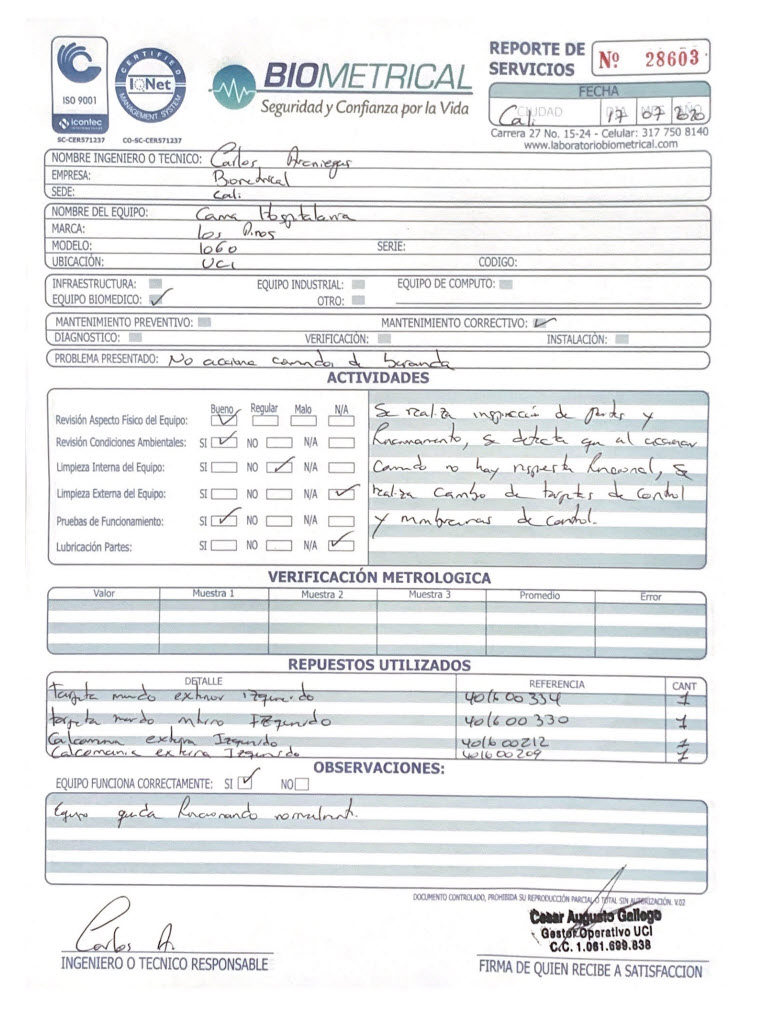 ISO 9001
icontec
SC-CER571237
CERTIFIED
IQNet
MANAGEMENT SYSTEM
CO-SC-CER571237
BIOMETRICAL
Seguridad y Confianza por la Vida
REPORTE DE SERVICIOS
Nº 28603
FECHA
CIUDAD DIA MES AÑO
Cali 17 07 2020
Carrera 27 No. 15-24 - Celular: 317 750 8140
www.laboratoriobiometrical.com
NOMBRE INGENIERO O TECNICO: Carlos
EMPRESA: Biometrical
SEDE: Cali
NOMBRE DEL EQUIPO: Cama Hospitalaria
MARCA: Los Pinos
MODELO: 1060 SERIE:
UBICACIÓN: UCI CODIGO:
INFRAESTRUCTURA: EQUIPO INDUSTRIAL: EQUIPO DE COMPUTO:
EQUIPO BIOMEDICO: ✓ OTRO:
MANTENIMIENTO PREVENTIVO: MANTENIMIENTO CORRECTIVO: ✓
DIAGNOSTICO: VERIFICACIÓN: INSTALACIÓN:
PROBLEMA PRESENTADO: No acciona comandos de baranda
ACTIVIDADES
Bueno Regular Malo N/A
Revisión Aspecto Físico del Equipo: ✓
Revisión Condiciones Ambientales: SI ✓ NO N/A
Limpieza Interna del Equipo: SI NO ✓ N/A
Limpieza Externa del Equipo: SI NO N/A ✓
Pruebas de Funcionamiento: SI ✓ NO N/A
Lubricación Partes: SI NO N/A ✓
Se realiza inspección de partes y
funcionamiento, se detecta que al accionar
comando no hay respuesta funcional, se
realiza cambio de tarjetas de control
y membranas de control.
VERIFICACIÓN METROLOGICA
Valor Muestra 1 Muestra 2 Muestra 3 Promedio Error
REPUESTOS UTILIZADOS
DETALLE REFERENCIA CANT
Tarjeta mando exterior izquierdo 401600334 1
tarjeta mando interno Izquierdo 401600330 1
Calcomania externa Izquierdo 401600212 1
Calcomania externa Izquierdo 401600209 1
OBSERVACIONES:
EQUIPO FUNCIONA CORRECTAMENTE: SI ✓ NO
Equipo queda funcionando normalmente.
DOCUMENTO CONTROLADO, PROHIBIDA SU REPRODUCCIÓN PARCIAL O TOTAL SIN AUTORIZACIÓN. V.02
Carlos A.
INGENIERO O TECNICO RESPONSABLE
Cesar Augusto Gallego
Gestor Operativo UCI
C.C. 1.061.699.838
FIRMA DE QUIEN RECIBE A SATISFACCION